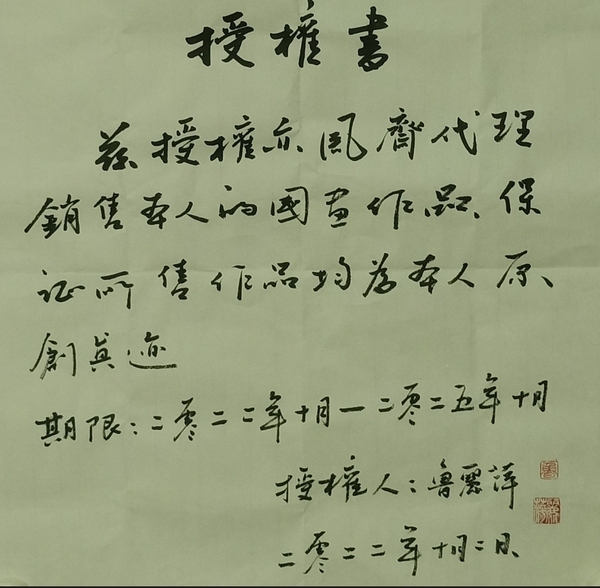 授權書
茲授權亦風齋代理
銷售本人的國畫作品、保
证所售作品均為本人原、
創真迹
期限:二零二二年十月一二零二五年十月
授權人:魯麗萍
二零二二年十月二日